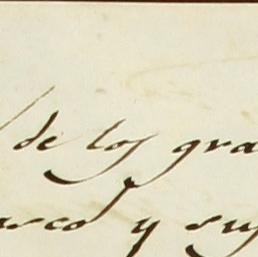 de los gra
asco y suj